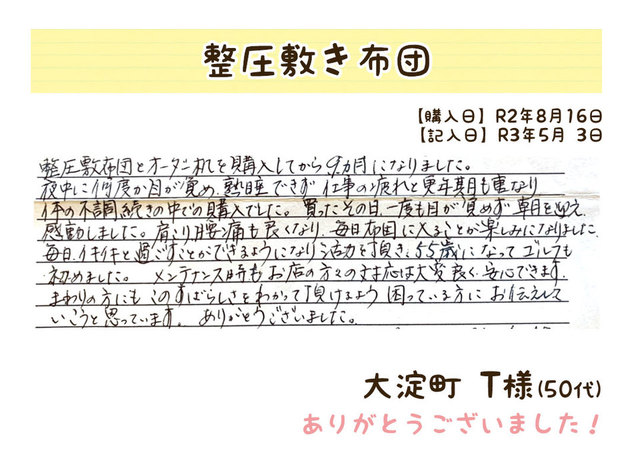 整圧敷き布団
【購入日】R2年8月16日
【記入日】R3年5月 3日
整圧敷布団とオーダー枕を購入してから9ヵ月になりました。
夜中に何度か目が覚め、熟睡できず仕事の疲れと更年期も重なり
体の不調続きの中での購入でした。買ったその日、一度も目が覚めず朝を迎え
感動しました。肩こり腰痛も良くなり、毎日布団に入ることが楽しみになりました。
毎日イキイキと過ごすことができるようになり活力を頂き、55歳になってゴルフも
初めました。メンテナンス時もお店の方々の対応は大変良く、安心できます。
まわりの方にもこのすばらしさをわかって頂けるよう困っている方にお伝えして
いこうと思っています。ありがとうございました。
大淀町 T様(50代)
ありがとうございました！